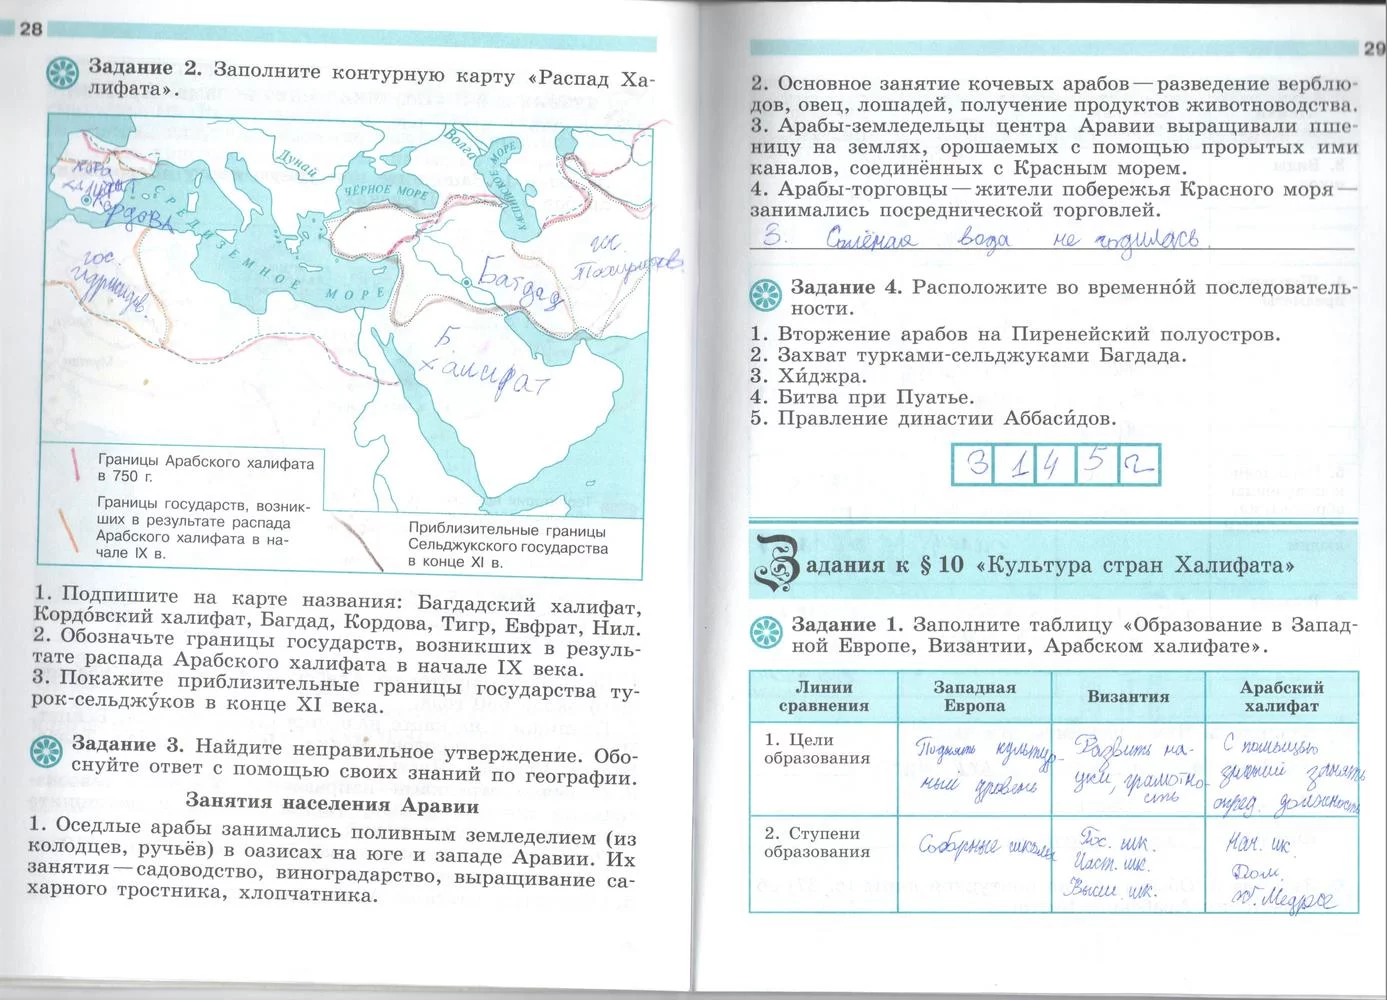 28
Задание 2. Заполните контурную карту «Распад Ха-
лифата».
Дунай
Волга
ЧЁРНОЕ МОРЕ
КАСПИЙСКОЕ МОРЕ
СРЕДИЗЕМНОЕ МОРЕ
Кордова
гос.
Идрисидов.
Багдад
гос.
Б.
Халифат
Границы Арабского халифата
в 750 г.
Границы государств, возник-
ших в результате распада
Арабского халифата в на-
чале IX в.
Приблизительные границы
Сельджукского государства
в конце XI в.
1. Подпишите на карте названия: Багдадский халифат,
Кордо́вский халифат, Багдад, Кордова, Тигр, Евфрат, Нил.
2. Обозначьте границы государств, возникших в резуль-
тате распада Арабского халифата в начале IX века.
3. Покажите приблизительные границы государства ту-
рок-сельджу́ков в конце XI века.
Задание 3. Найдите неправильное утверждение. Обо-
снуйте ответ с помощью своих знаний по географии.
Занятия населения Аравии
1. Оседлые арабы занимались поливным земледелием (из
колодцев, ручьёв) в оазисах на юге и западе Аравии. Их
занятия — садоводство, виноградарство, выращивание са-
харного тростника, хлопчатника.
29
2. Основное занятие кочевых арабов — разведение верблю-
дов, овец, лошадей, получение продуктов животноводства.
3. Арабы-земледельцы центра Аравии выращивали пше-
ницу на землях, орошаемых с помощью прорытых ими
каналов, соединённых с Красным морем.
4. Арабы-торговцы — жители побережья Красного моря —
занимались посреднической торговлей.
3. Солёная вода не годилась.
Задание 4. Расположите во временно́й последователь-
ности.
1. Вторжение арабов на Пиренейский полуостров.
2. Захват турками-сельджуками Багдада.
3. Хи́джра.
4. Битва при Пуатье.
5. Правление династии Аббаси́дов.
3 1 4 5 2
Задания к § 10 «Культура стран Халифата»
Задание 1. Заполните таблицу «Образование в Запад-
ной Европе, Византии, Арабском халифате».
Линии
сравнения
Западная
Европа
Византия
Арабский
халифат
1. Цели
образования
Поднять культур-
ный уровень
Развить на-
уки, грамотно-
сть
С помощью
знаний занять
опред. должность
2. Ступени
образования
Соборные школы
Гос. шк.
Част. шк.
Высш. шк.
Нач. шк.
Дом.
Медресе